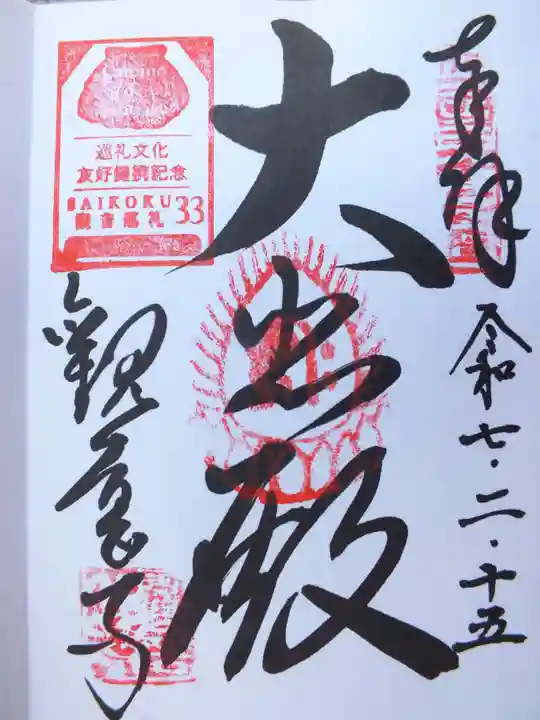 奉拝
令和七・二・十五
大悲殿
Camino
巡礼文化
友好締携記念
SAIKOKU
観音巡礼 33
観音寺